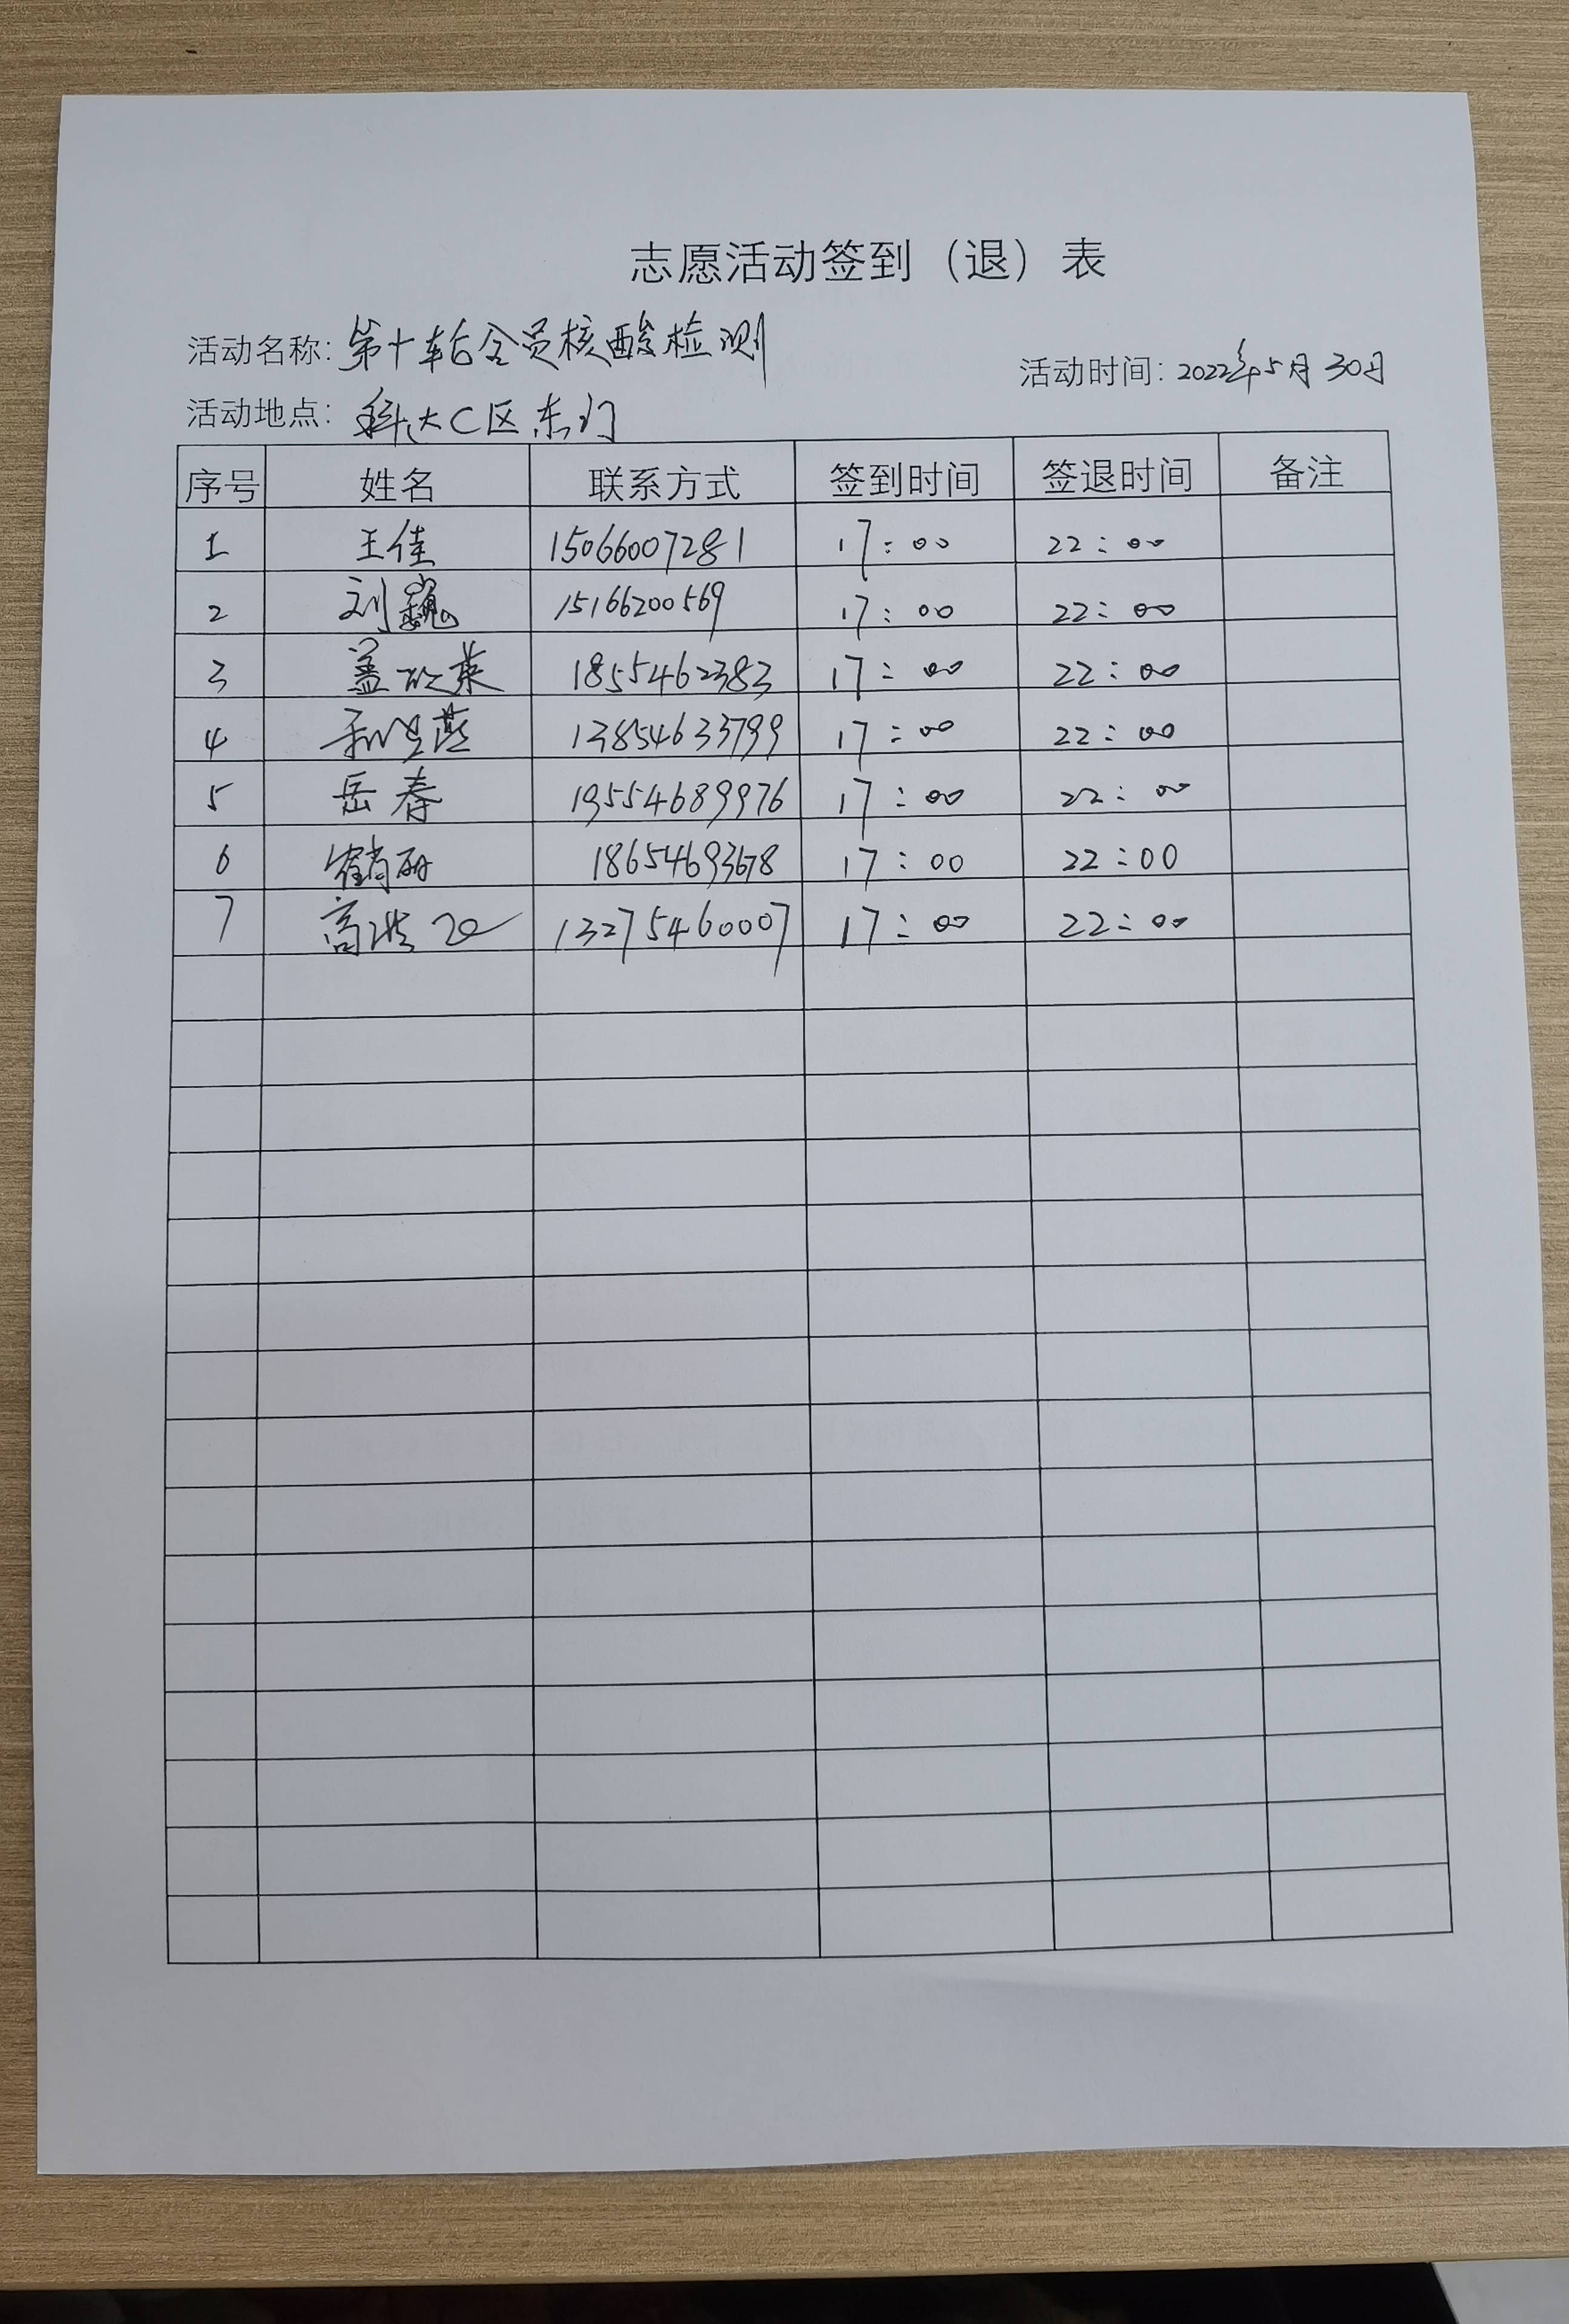 志愿活动签到（退）表
活动名称：第十轮全员核酸检测
活动时间：2022年5月30日
活动地点：科大C区东门
序号 姓名 联系方式 签到时间 签退时间 备注
1 王佳 15066007281 17:00 22:00
2 刘巍 15166200569 17:00 22:00
3 盖 1855462383 17:00 22:00
4 13854633799 17:00 22:00
5 岳春 19554689976 17:00 22:00
6 18654693678 17:00 22:00
7 高 13275460007 17:00 22:00